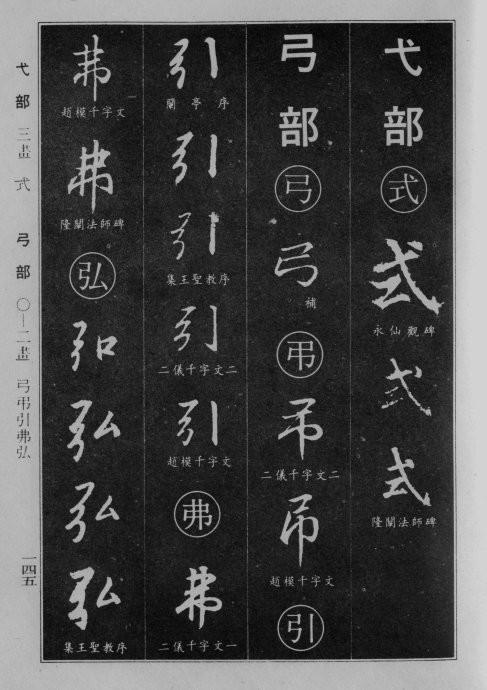 弋部
式
式
永仙觀碑
式
式
隆闡法師碑
弓部
弓
弓
補
弔
弔
二儀千字文二
弔
趙模千字文
引
引
蘭亭序
引
引
集王聖教序
引
二儀千字文二
引
趙模千字文
弗
弗
二儀千字文一
弗
趙模千字文
弗
隆闡法師碑
弘
弘
弘
弘
弘
集王聖教序
弋部 三畫 式 弓部 〇—二畫 弓弔引弗弘
一四五